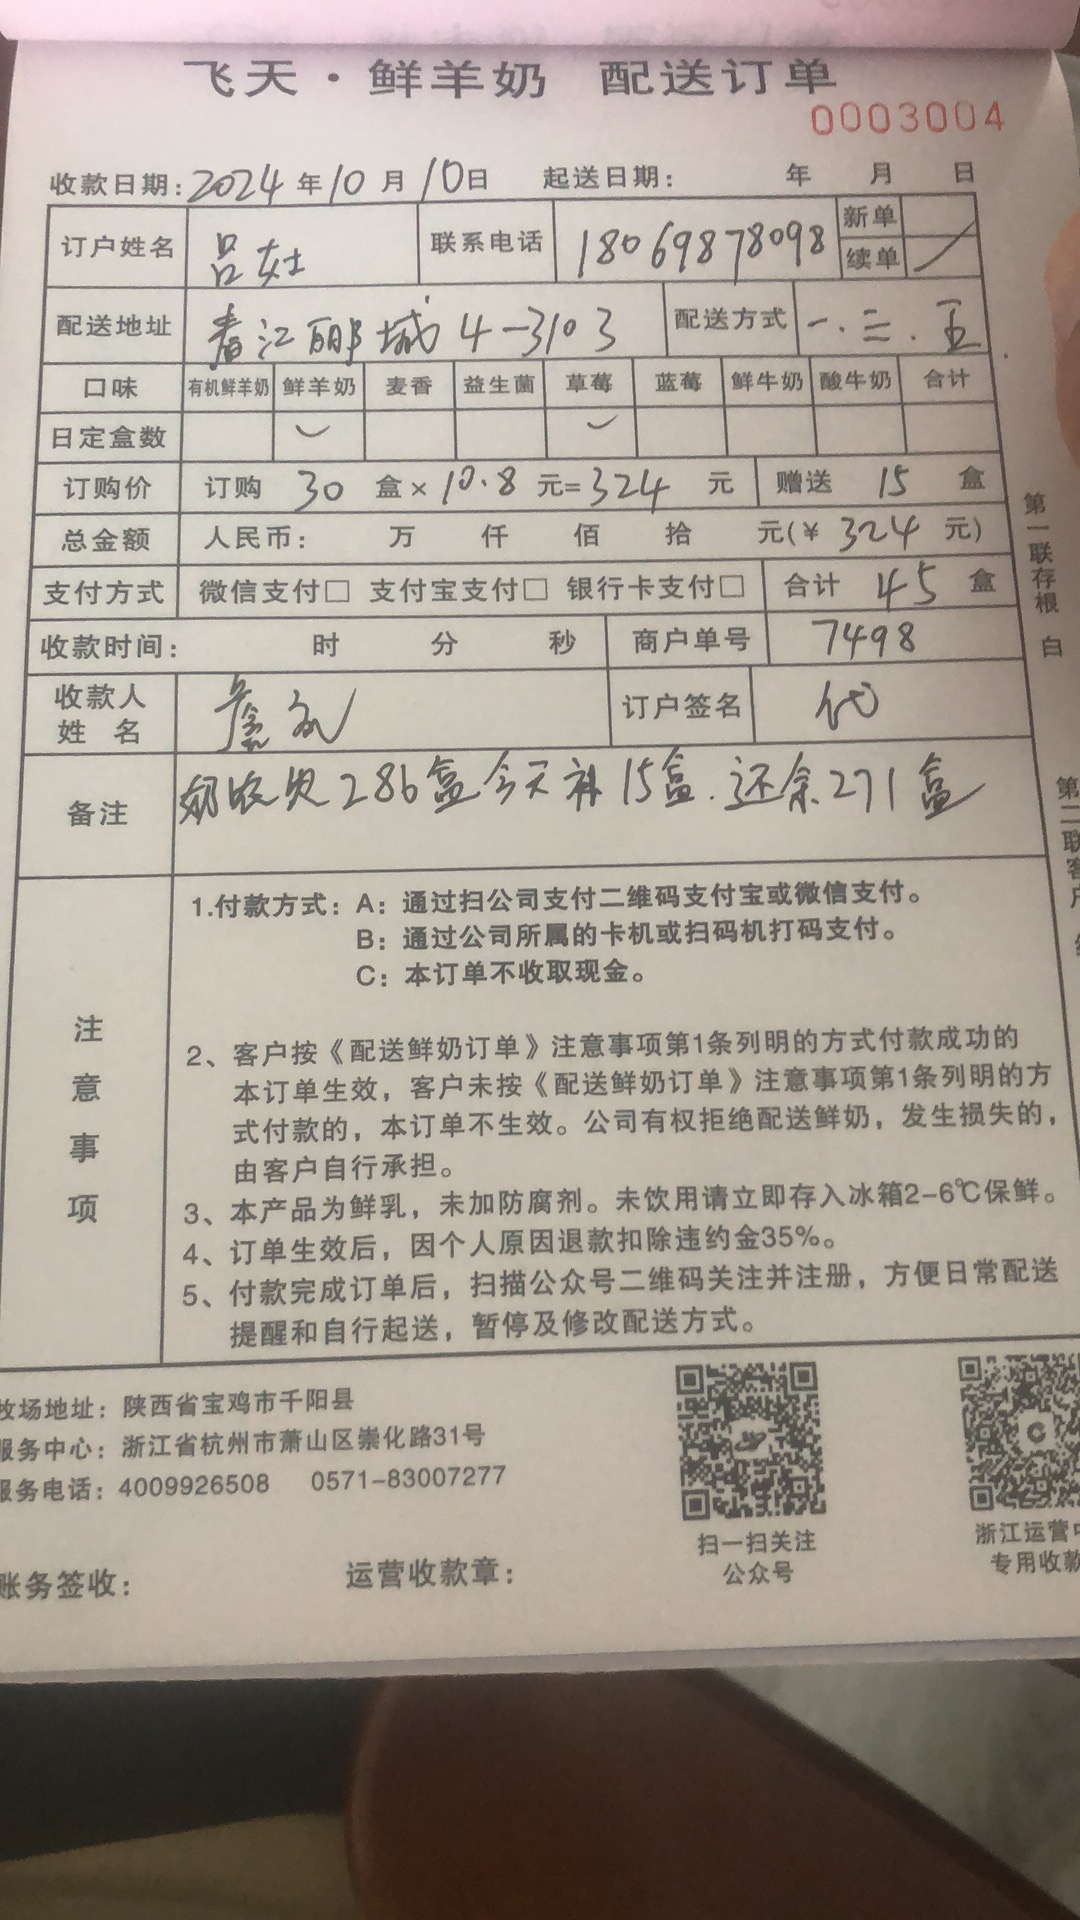 飞天·鲜羊奶 配送订单
0003004
收款日期:2024年10月10日 起送日期: 年 月 日
订户姓名 吕女士 联系电话 18069878098 新单
续单 /
配送地址 春江郦城4-3103 配送方式 一.三.五.
口味 有机鲜羊奶 鲜羊奶 麦香 益生菌 草莓 蓝莓 鲜牛奶 酸牛奶 合计
日定盒数
订购价 订购 30 盒×10.8元=324 元 赠送 15 盒
总金额 人民币: 万 仟 佰 拾 元(¥ 324 元)
支付方式 微信支付□ 支付宝支付□ 银行卡支付□ 合计 45 盒
收款时间: 时 分 秒 商户单号 7498
收款人
姓 名 詹 订户签名 代
备注 286盒今天补15盒.还余271盒
注意事项
1.付款方式:A:通过扫公司支付二维码支付宝或微信支付。
B:通过公司所属的卡机或扫码机打码支付。
C:本订单不收取现金。
2、客户按《配送鲜奶订单》注意事项第1条列明的方式付款成功的
本订单生效,客户未按《配送鲜奶订单》注意事项第1条列明的方
式付款的,本订单不生效。公司有权拒绝配送鲜奶,发生损失的,
由客户自行承担。
3、本产品为鲜乳,未加防腐剂。未饮用请立即存入冰箱2-6℃保鲜。
4、订单生效后,因个人原因退款扣除违约金35%。
5、付款完成订单后,扫描公众号二维码关注并注册,方便日常配送
提醒和自行起送,暂停及修改配送方式。
第一联存根 白
第二联客户
牧场地址:陕西省宝鸡市千阳县
服务中心:浙江省杭州市萧山区崇化路31号
服务电话:4009926508 0571-83007277
扫一扫关注
公众号
浙江运营中
专用收款
账务签收: 运营收款章: